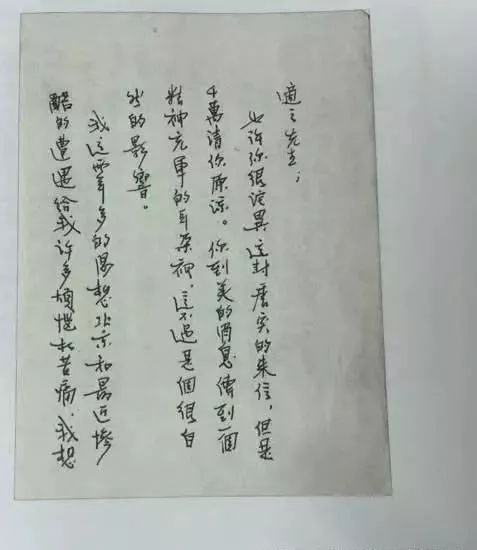 適之先生：
也許你很詫異這封唐突的來信，但是
千萬請你原諒。你到美的消息傳到一個
精神充軍的耳朵裡，這不過是個很自
然的影響。
我這兩年多的渴想北京和最近慘
酷的遭遇給我許多煩惱和苦痛．我想